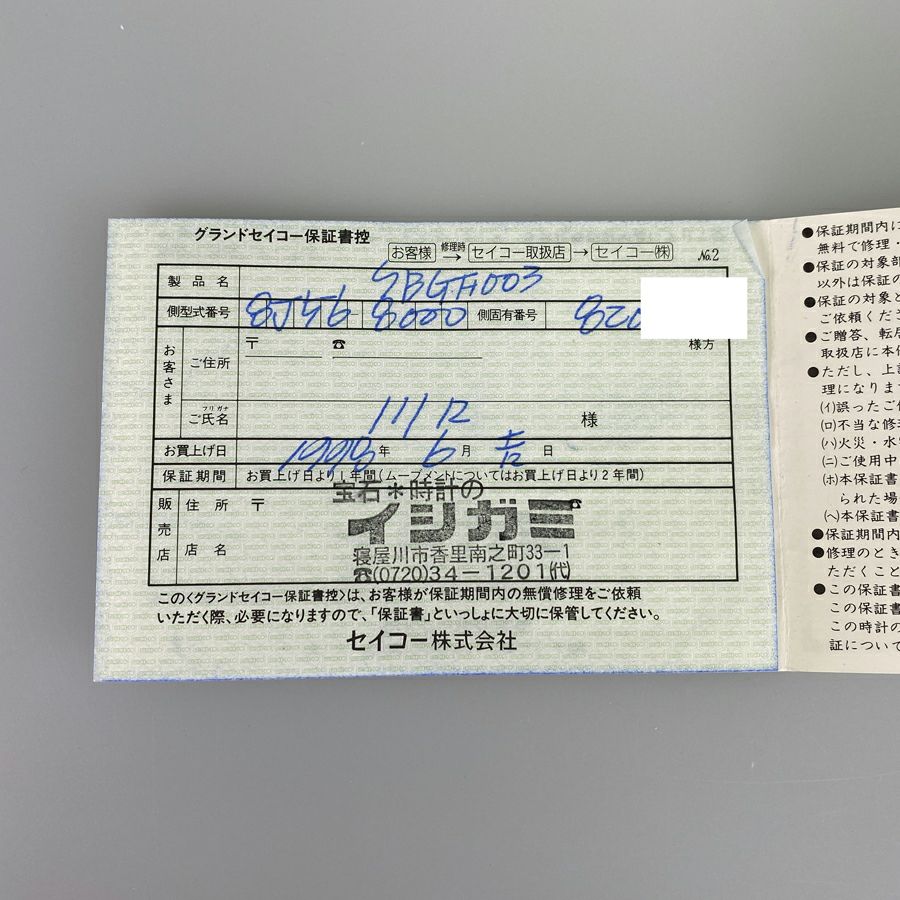 グランドセイコー保証書控
お客様 修理時→ セイコー取扱店 → セイコー㈱ No.2
製品名 SBGF003
側型式番号 8J56-8000 側固有番号 820
お客さま ご住所 〒 ☎ 様方
フリガナ
ご氏名 11/12 様
お買上げ日 1998年 6月 吉日
保証期間 お買上げ日より1年間(ムーブメントについてはお買上げ日より2年間)
販売店 住所 〒 ☎
店名
宝石*時計の
イシガミ
寝屋川市香里南之町33-1
☎(0720)34-1201(代)
この〈グランドセイコー保証書控〉は、お客様が保証期間内の無償修理をご依頼
いただく際、必要になりますので、「保証書」といっしょに大切に保管してください。
セイコー株式会社
●保証期間内に
無料で修理・
●保証の対象部
以外は保証の
●保証の対象と
ご依頼くださ
●ご贈答、転居
取扱店に本保
●ただし、上記
理になります
(イ)誤ったご使
(ロ)不当な修理
(ハ)火災・水害
(ニ)ご使用中
(ホ)本保証書
られた場
(ヘ)本保証書
●保証期間内
●修理のとき
ただくこと
●この保証書
この保証書
この時計の
証について